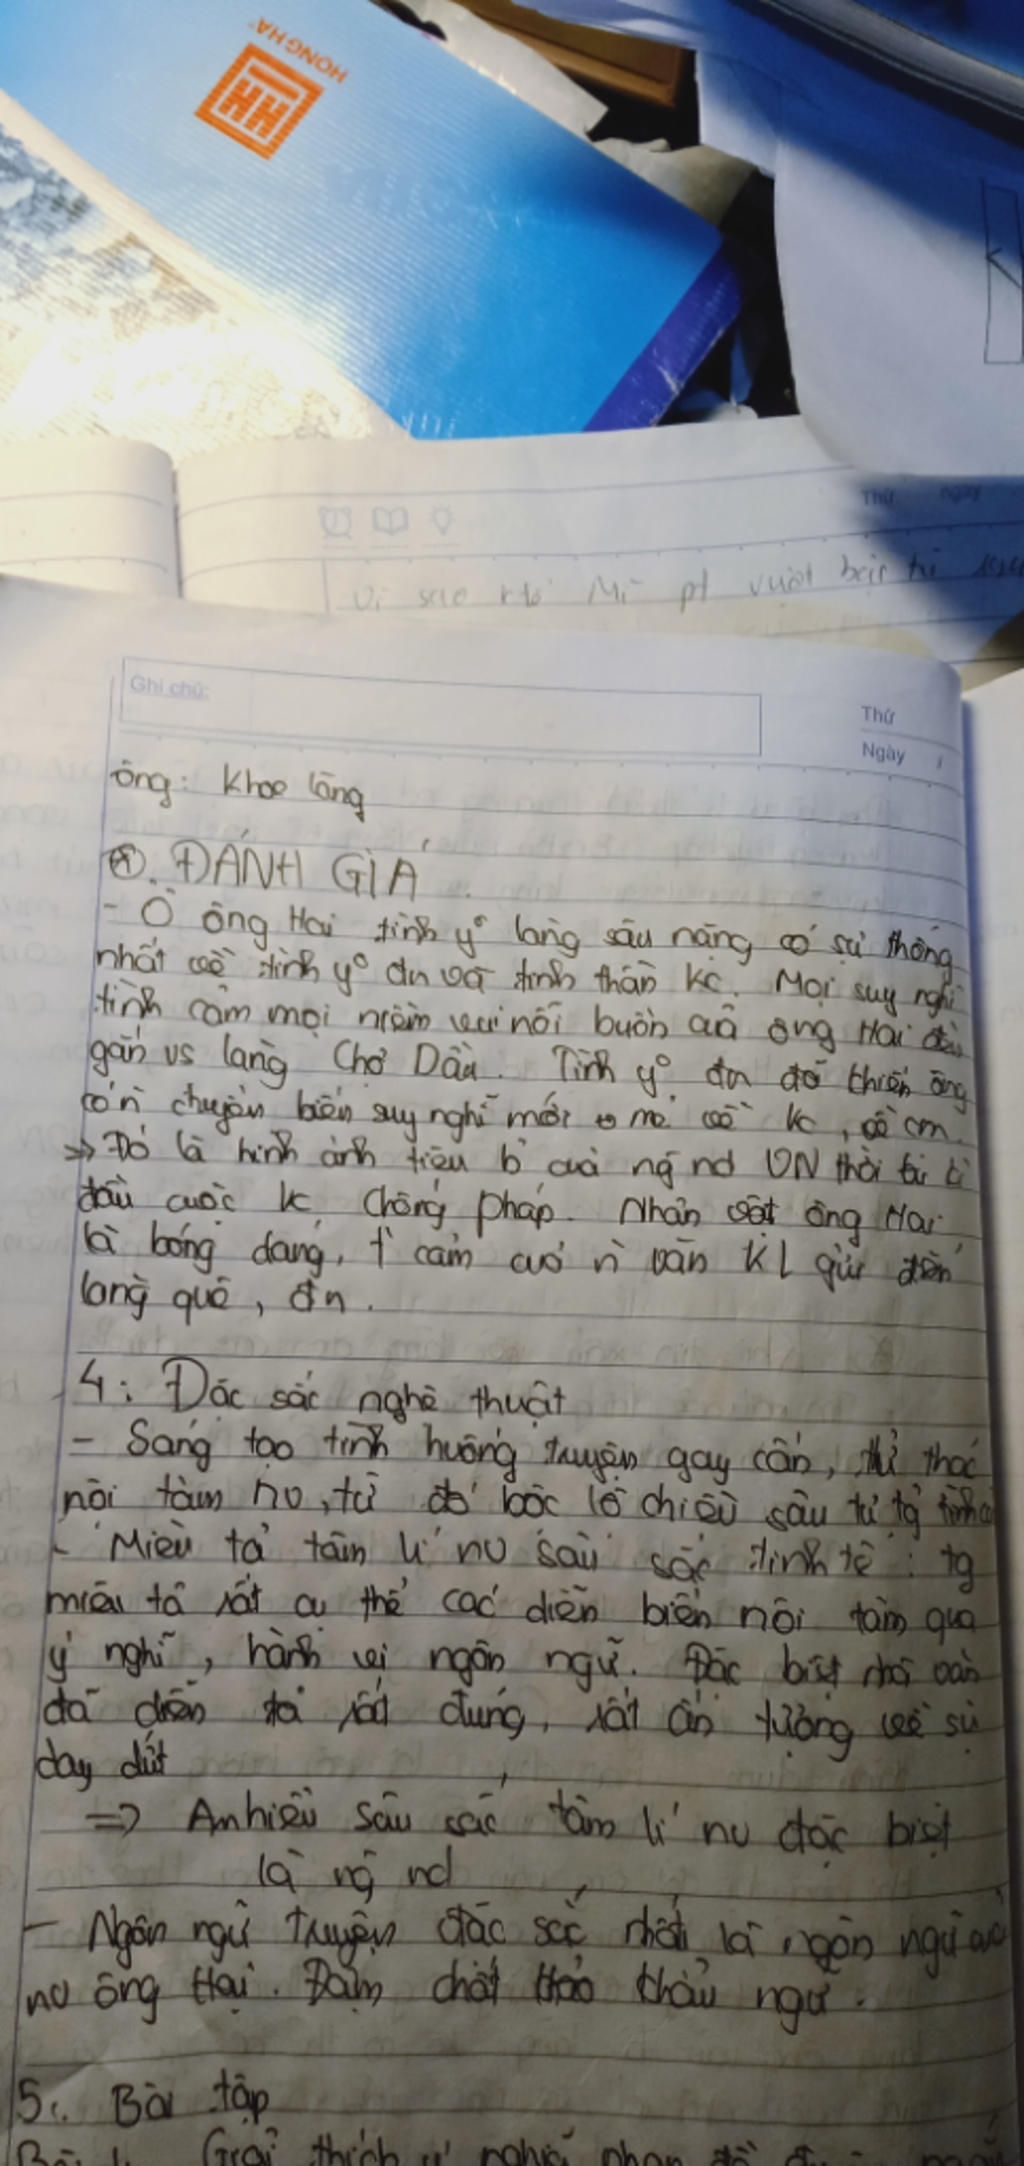 HONG HA
Thứ ngày
Vì sao Mĩ pt vượt bậc từ
Ghi chú:
Thứ
Ngày
ông: khoe làng
ĐÁNH GIÁ
- Ở ông Hai tình y° làng sâu nặng có sự thống
nhất về tình y° đn và tinh thần kc. Mọi suy nghĩ
tình cảm mọi niềm vui nỗi buồn của ông Hai đều
gắn vs làng Chợ Dầu. Tình y° đn đó khiến ông
có n̄ chuyển biến suy nghĩ mới mẻ về kc, về cm.
=> Đó là hình ảnh tiêu b' của ng̀ nd VN thời
đầu cuộc kc chống Pháp. Nhân vật ông Hai
là bóng dáng, t' cảm của n̄ văn KL gửi đến
làng quê, đn.
4: Đặc sắc nghệ thuật
- Sáng tạo tình huống truyện gay cấn, thử thách
nội tâm nv, từ đó bộc lộ chiều sâu tư tg
- Miêu tả tâm lí nv sâu sắc tinh tế: tg
miêu tả rất cụ thể các diễn biến nội tâm qua
ý nghĩ, hành vi ngôn ngữ. Đặc biệt nhà văn
đã diễn tả rất đúng, rất ấn tượng về sự
day dứt
=> Am hiểu sâu sắc tâm lí nv đặc biệt
là ng̀ nd
- Ngôn ngữ truyện đặc sắc nhất là ngôn ngữ của
nv ông Hai. Đậm chất khẩu ngữ.
5. Bài tập
Bài 1. Giải thích ý nghĩa nhan đề